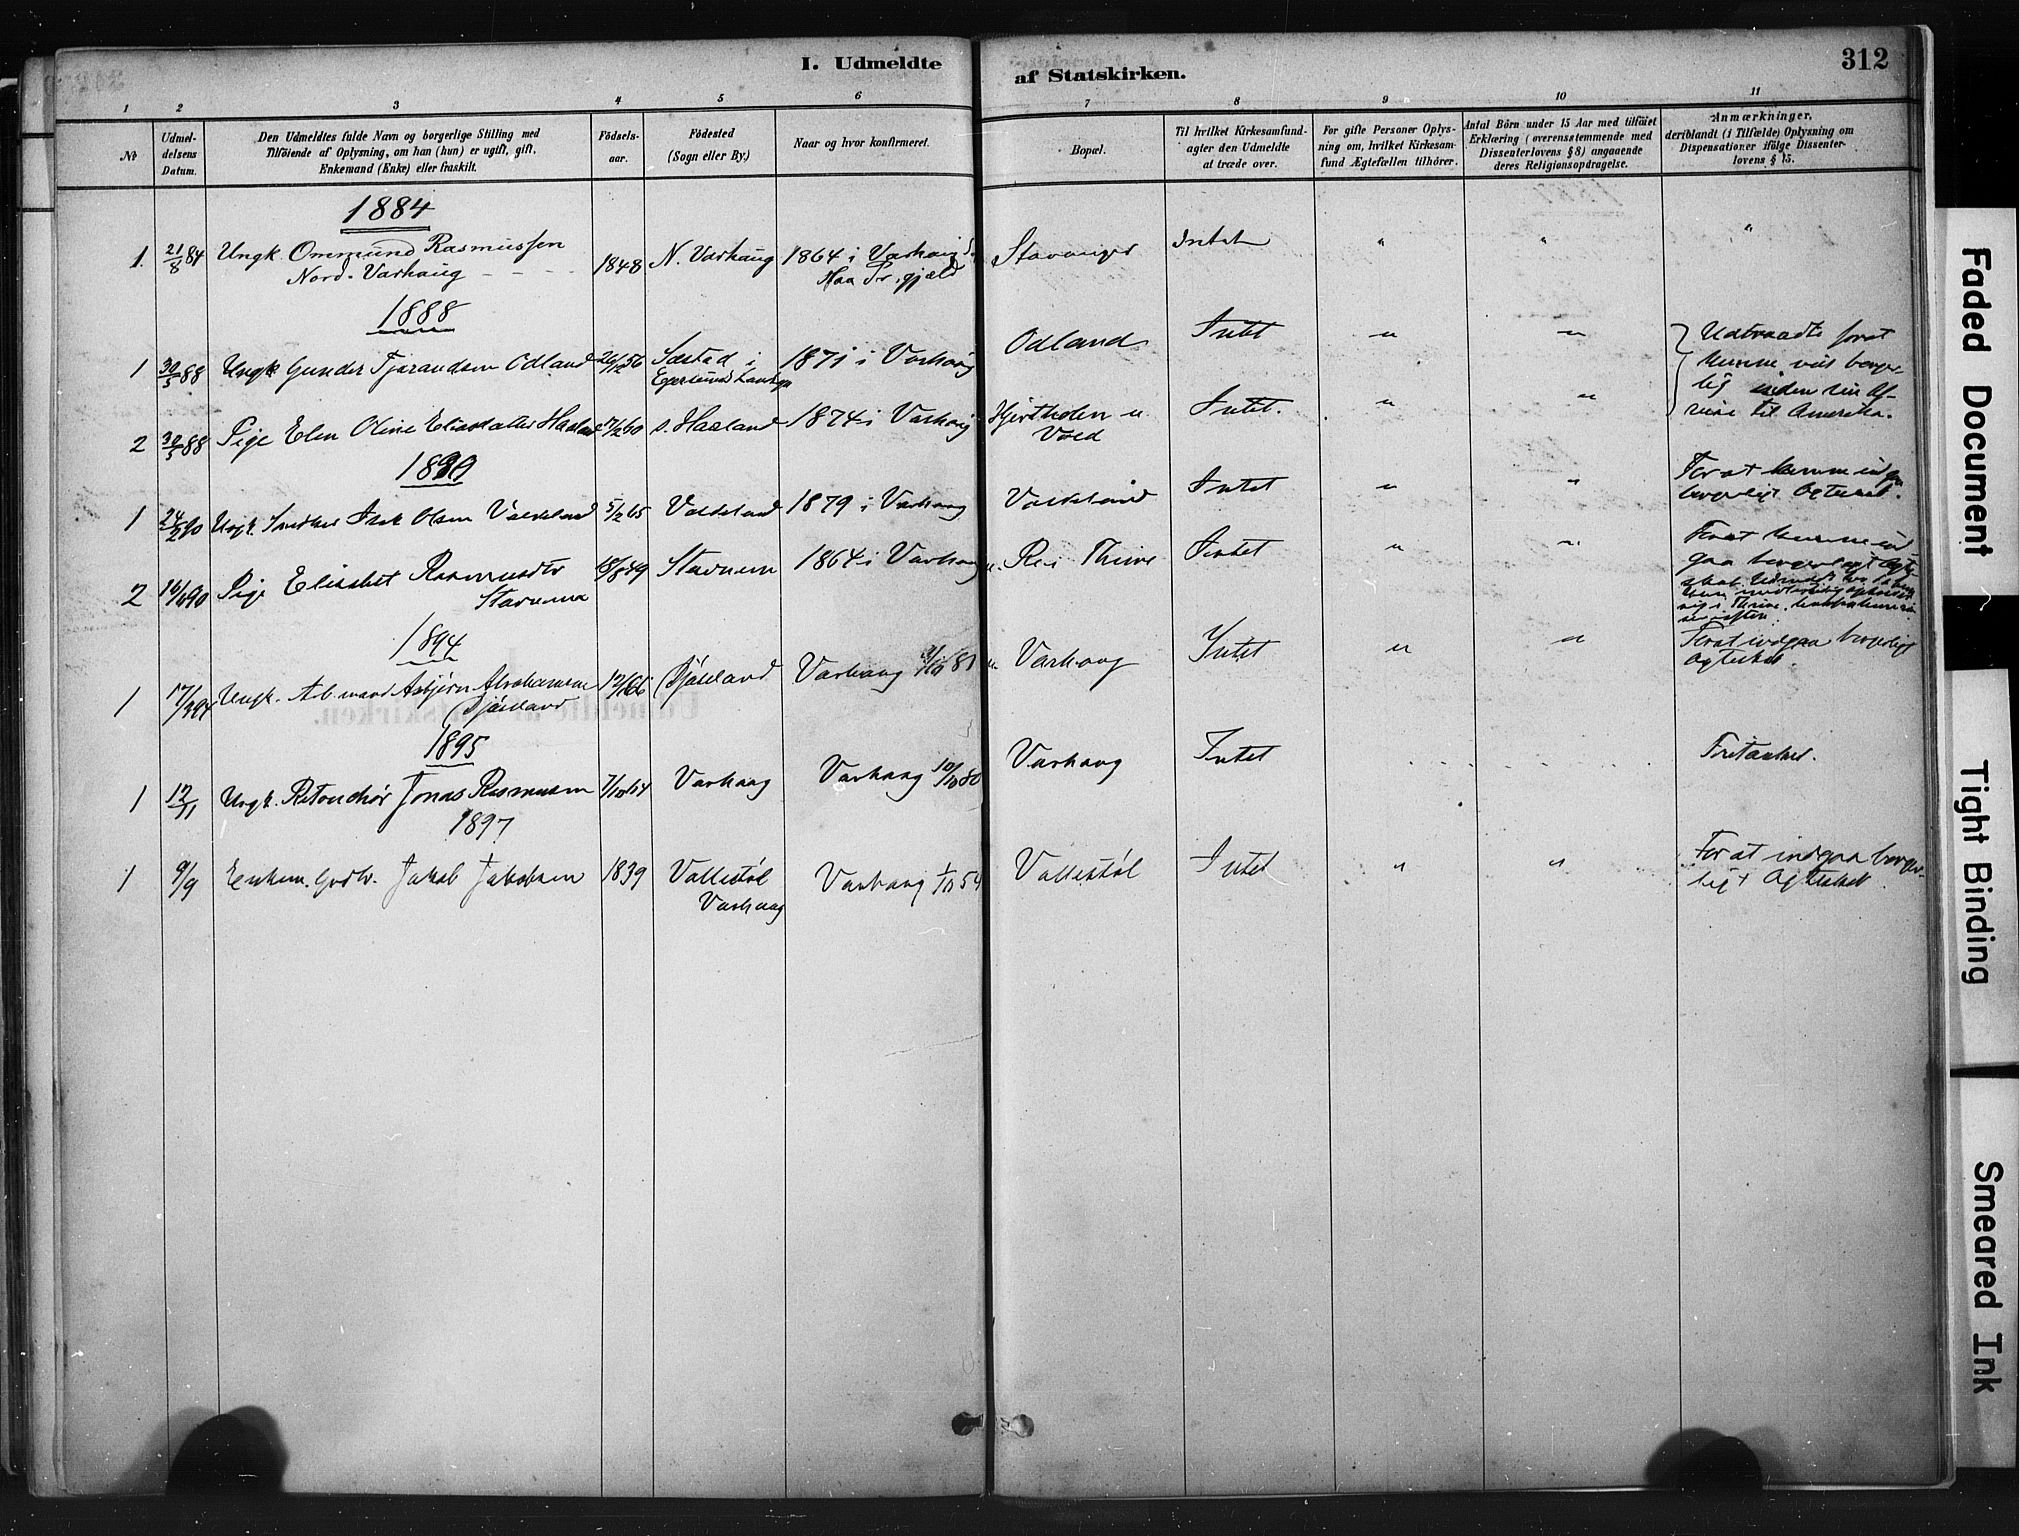 I. Udmeldte af Statskirken.
312
1 2 3 4 5 6 7 8 9 10 11
No
Udmel-
delsens
Datum.
Den Udmeldtes fulde Navn og borgerlige Stilling med
Tilföiende af Oplysning, om han (hun) er ugift, gift,
Enkemand (Enke) eller fraskilt.
Födsels-
aar.
Födested
(Sogn eller By.)
Naar og hvor konfirmeret.
Bopæl.
Til hvilket Kirkesamfund-
agter den Udmeldte
at træde over.
For gifte Personer Oplys-
ning om, hvilket Kirkesam-
fund Ægtefællen tilhörer.
Antal Börn under 15 Aar med tilföiet
Erklæring (overensstemmende med
Dissenterlovens § 8) angaaende
deres Religionsopdragelse.
Anmærkninger,
deriblandt (i Tilfælde) Oplysning om
Dispensationer ifölge Dissenter-
lovens § 15.
1884
1. 21/8 84 Ungk. Ommund Rasmussen 1848 N. Varhaug 1864 i Varhaug Stavanger Intet " " "
Nord-Varhaug Haa Pr.gjæld
1888
1 30/5 88 Ungk. Gunder Tjerandsen Odland 26/12 56 i 1871 i Varhaug Odland Intet " "
Udtraadte forat
kunne vies borger-
lig inden sin Af-
reise til Amerika.
2 30/5 88 Pige Elen Oline Eliasdatter Haaland 60 s. Haaland 1874 i Varhaug Intet. " "
1890
1 24/2 90 Ungk. Olsen Valdeland 5/2 65 Valdeland 1879 i Varhaug Valdeland Intet " "
For at kunne indgaa
borgerligt Ægteskab.
2 16/4 90 Pige Elisabet Rasmusdtr 49 Stavnem 1864 i Varhaug Re i Thime Intet " "
Forat kunne ind
gaa borgerligt
1894
1 Ungk. Asbjørn Abrahamsen 66 Varhaug 81 Varhaug Intet " "
Forat indgaa borgerligt
Ægteskab.
1895
1 12/11 Ungk. Retouchör Jonas Rasmussen 7/10 64 Varhaug Varhaug 10/10 80 Varhaug Intet
Fritænker.
1897
1 9/9 Enkem. Jakob Jakobsen 1839 Vallestøl Varhaug 1/10 54 Vallestøl Intet " "
Varhaug
For at indgaa borger-
ligt Ægteskab.
Faded Document
Tight Binding
Smeared Ink